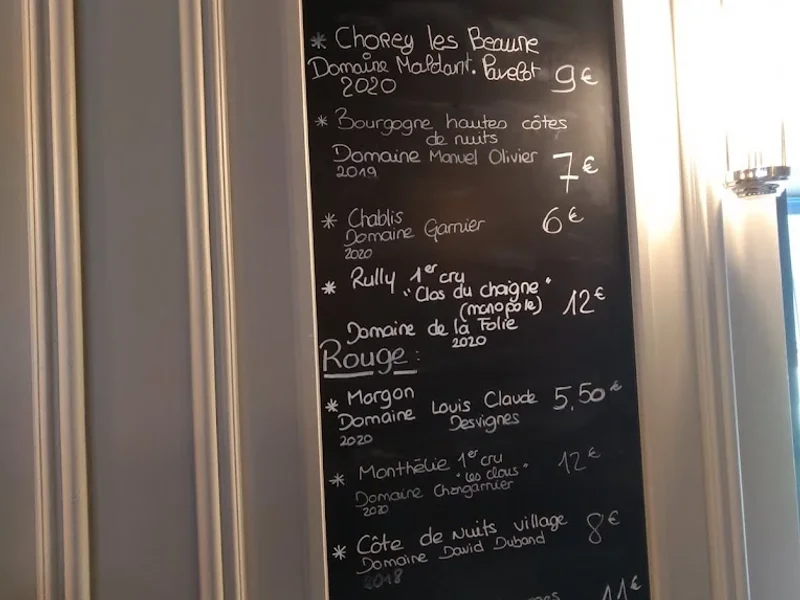 * Chorey les Beaune
Domaine Maldant. Pavelot 9€
2020
* Bourgogne hautes côtes
de nuits
Domaine Manuel Olivier 7€
2019
* Chablis 6€
Domaine Garnier
2020
* Rully 1er cru
"Clos du chaigne"
(monopole) 12€
Domaine de la Folie
2020
Rouge :
* Morgon
Domaine Louis Claude 5,50€
Desvignes
2020
* Monthélie 1er cru 12€
"les clous"
Domaine Changarnier
2020
* Côte de Nuits village 8€
Domaine David Duband
2018
11€